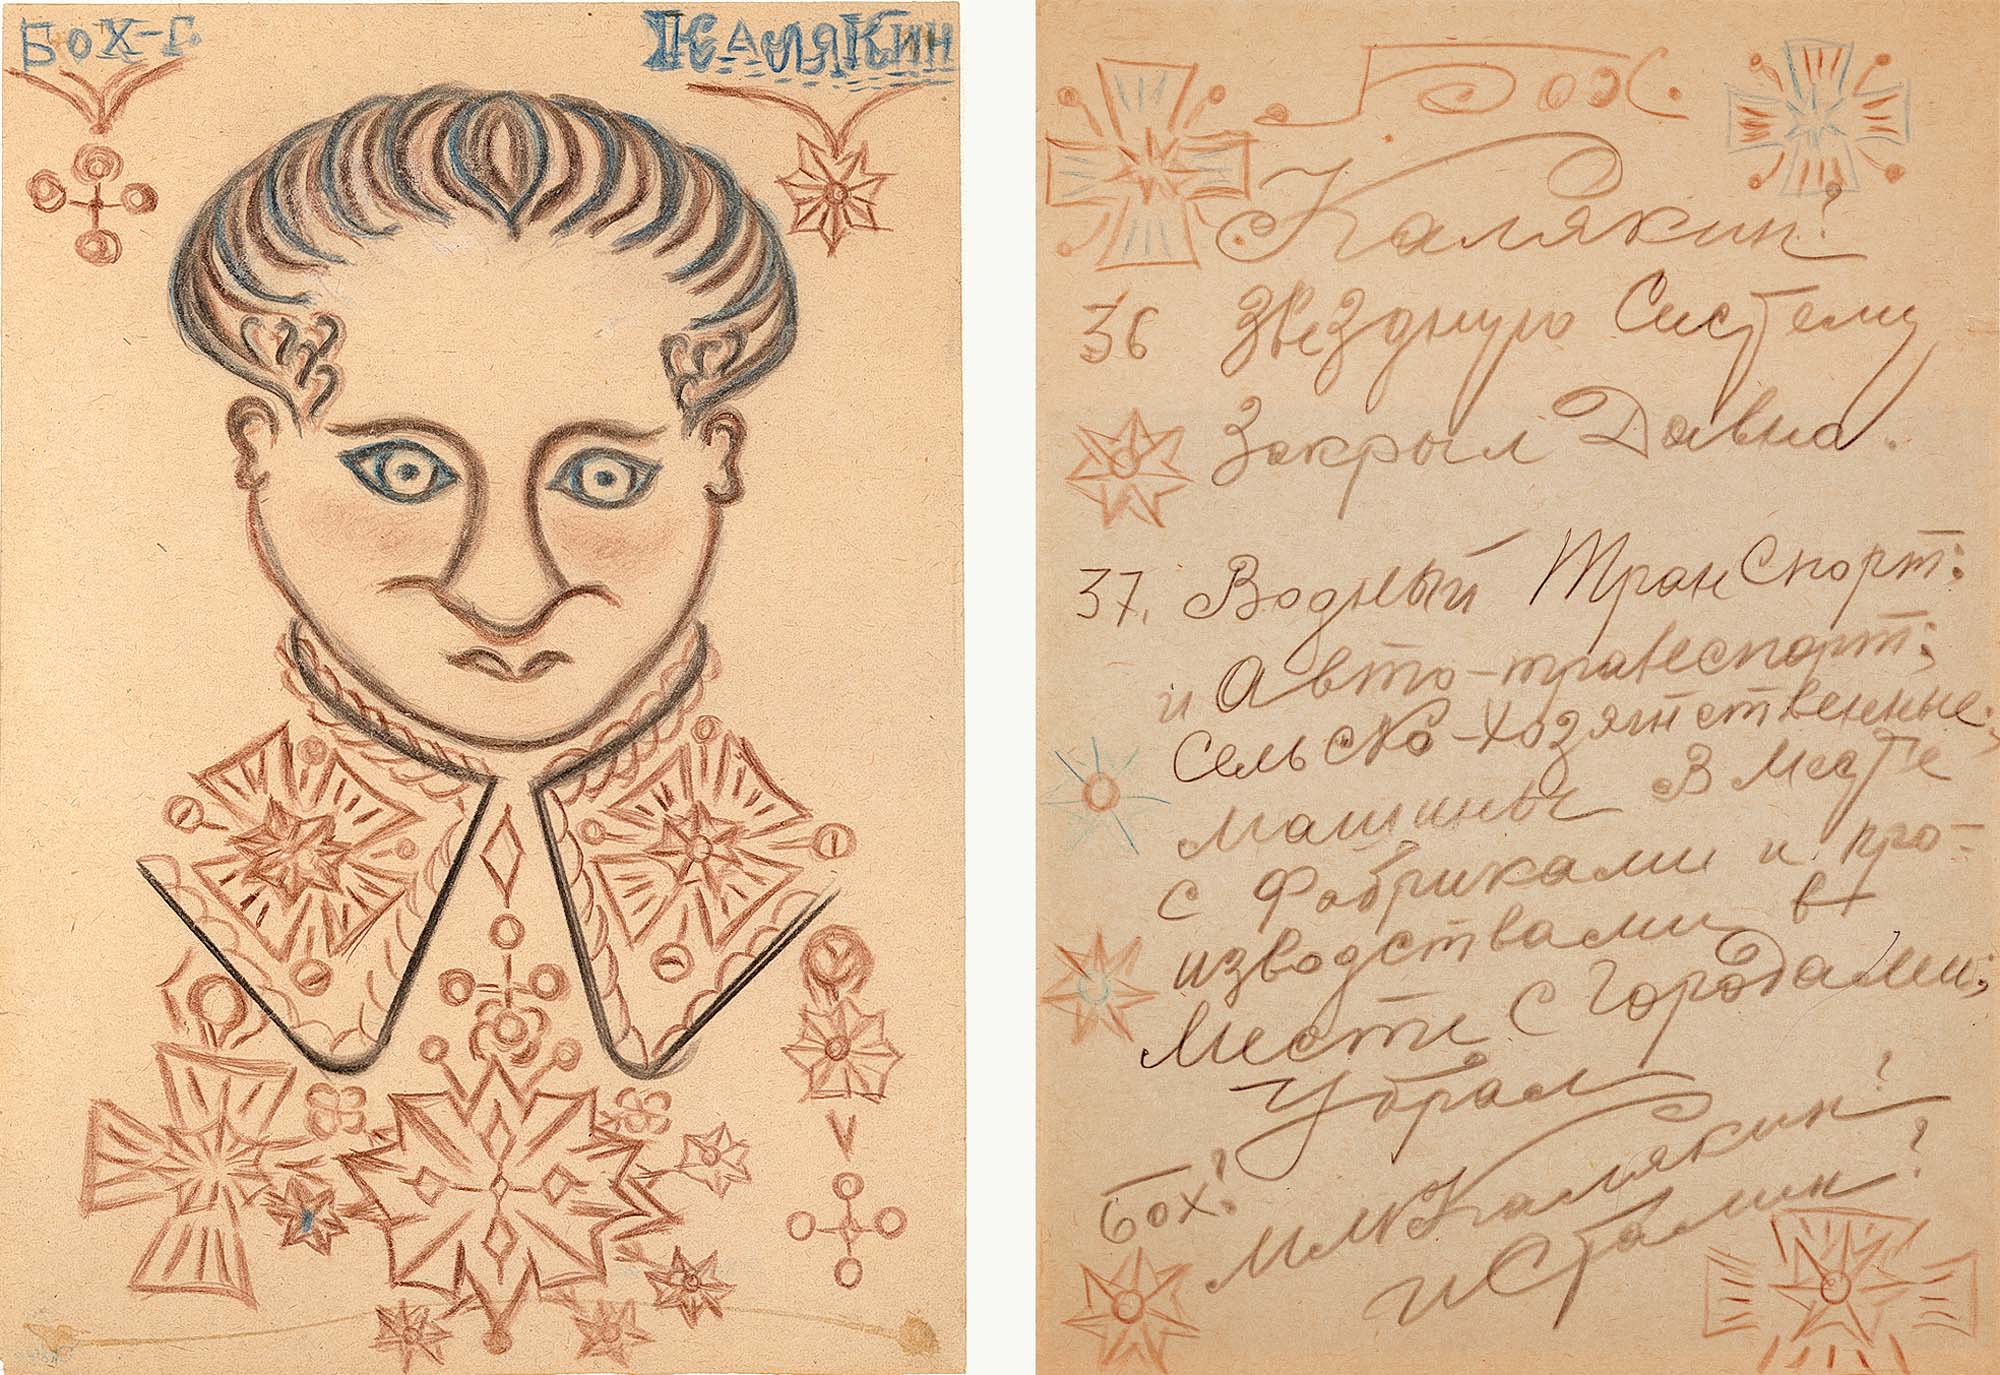 Бох-Г. Калякин
Бох.
Калякин!
36 Звездную Систему
Закрыл Давно.
37. Водный Транспорт:
и Авто-транеспорт;
Сельско-хозяйственные;
машины В месте
с Фабриками и про-
изводствами в
месте с Городами;
Убрал
Бох! Калякин!
и Сталин!